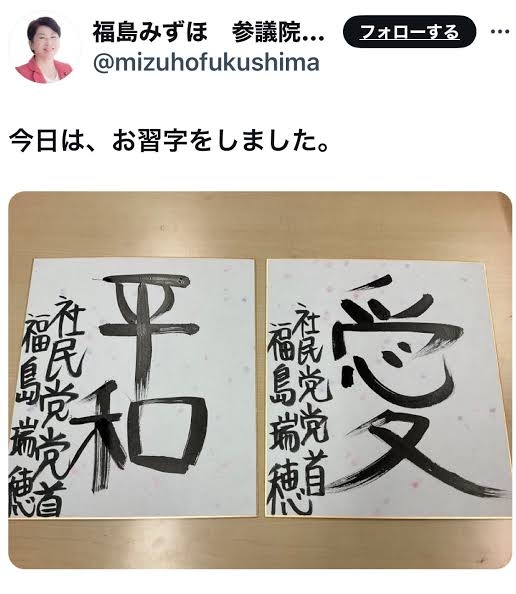 福島みずほ 参議院...
フォローする
@mizuhofukushima
今日は、お習字をしました。
平和
社民党党首
福島瑞穂
愛
社民党党首
福島瑞穂